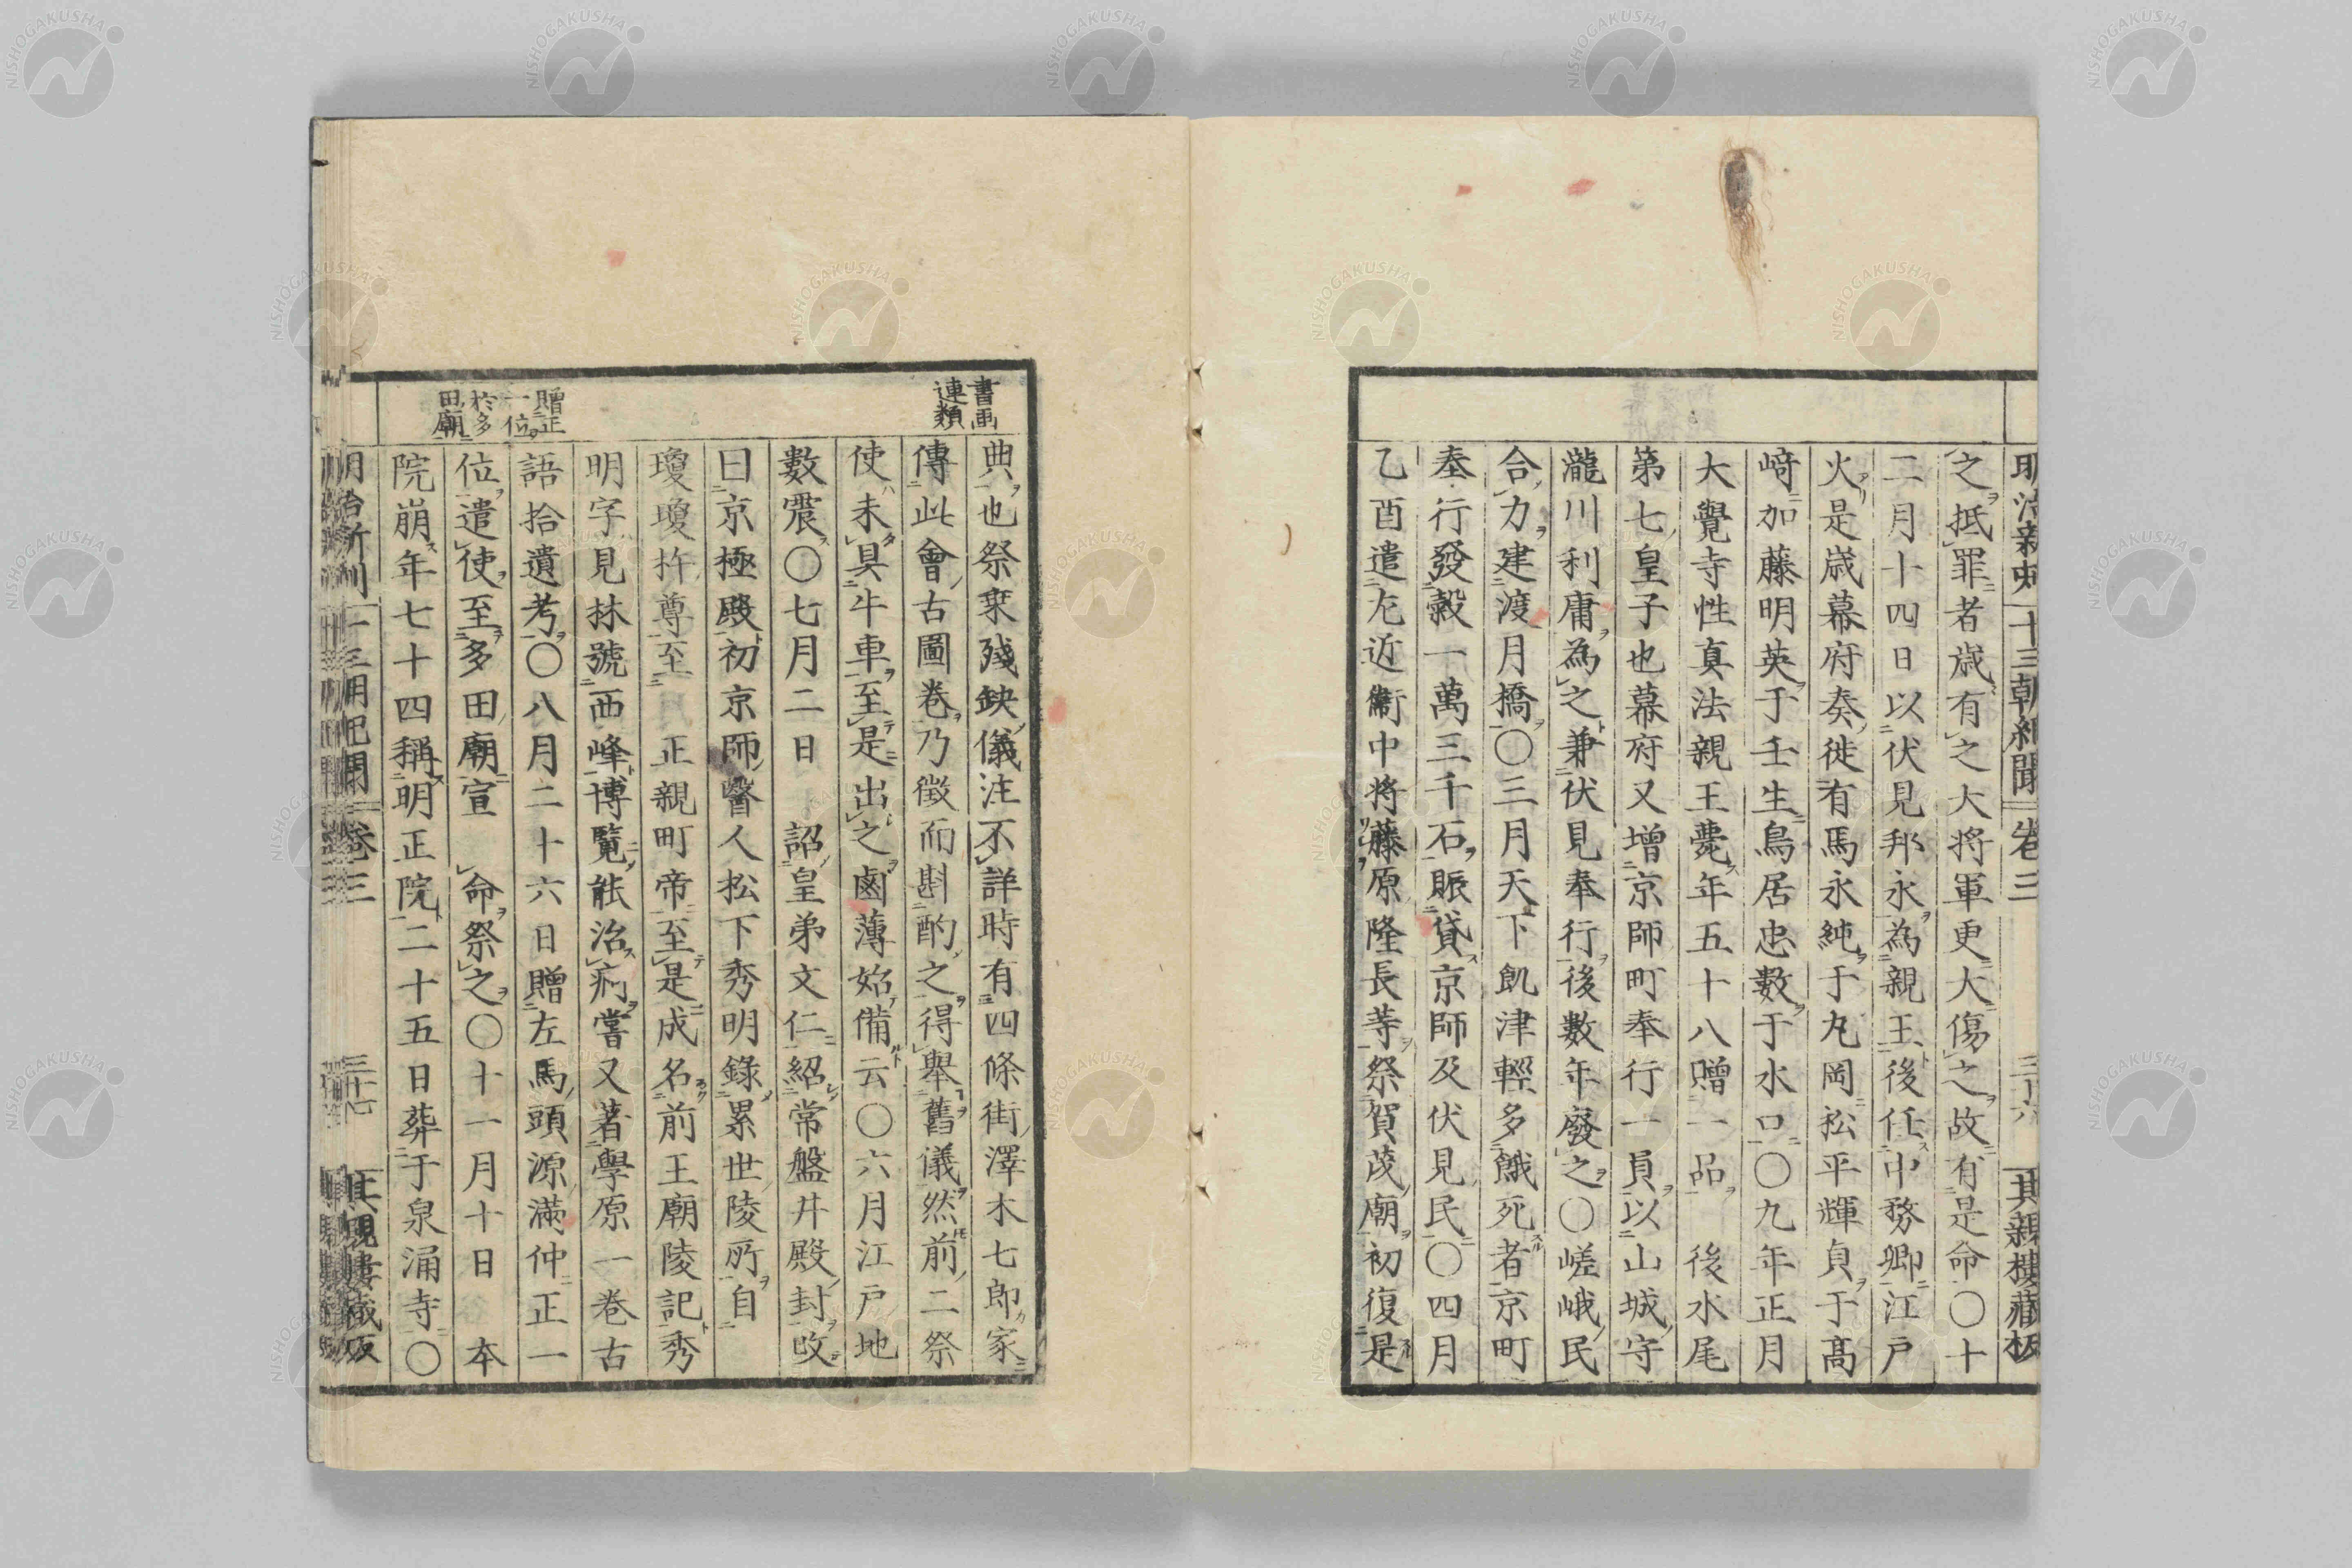 明治新刻 十三朝紀聞 卷三 三十六 其親樓藏板
之抵罪者歲有之大將軍更大傷之故有是命〇十
二月十四日以伏見邦永為親王後任中務卿江戶
火是歲幕府奏徙有馬永純于丸岡松平輝貞于高
﨑加藤明英于壬生鳥居忠數于水口〇九年正月
大覺寺性真法親王薨年五十八贈一品 後水尾
第七皇子也幕府又增京師町奉行一員以山城守
瀧川利庸為之兼伏見奉行後數年廢之〇嵯峨民
合力建渡月橋〇三月天下飢津輕多餓死者京町
奉行發穀一萬三千石賑貸京師及伏見民〇四月
乙酉遣左近衞中將藤原隆長等祭賀茂廟初復是
書画
連類
典也祭衆殘缺儀注不詳時有四條街澤木七郎家
傳此會古圖卷乃徵而斟酌之得舉舊儀然前二祭
使未具牛車至是出之鹵薄始備云〇六月江戶地
數震〇七月二日 詔皇弟文仁紹常盤井殿封改
曰京極殿初京師醫人松下秀明錄累世陵所自
瓊瓊杵尊至 正親町帝至是成名前王廟陵記秀
明字見林號西峰博覽能治病嘗又著學原一卷古
語拾遺考〇八月二十六日贈左馬頭源滿仲正一
位遣使至多田廟宣 命祭之〇十一月十日 本
院崩年七十四稱明正院二十五日葬于泉涌寺〇
贈正
一位
於多
田廟
明治新刻 十三朝紀聞 卷三 三十七 其親樓藏板
NISHOGAKUSHA